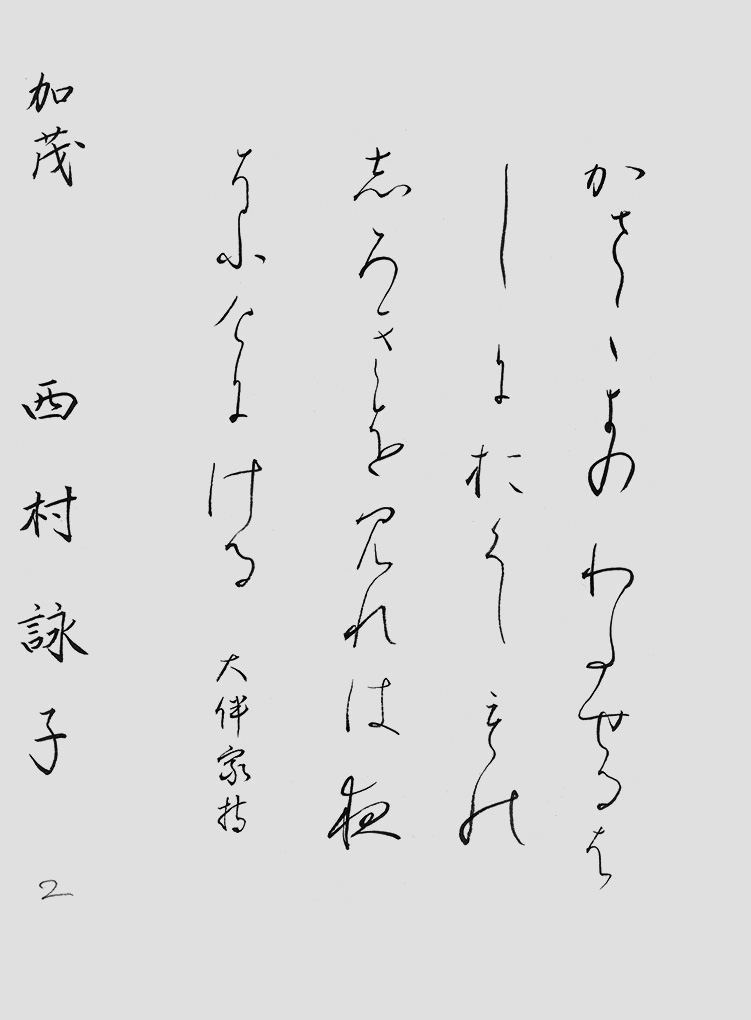 かさゝきのわたせるは
しにおくしもの
志ろきを見れは夜
そふけにける
大伴家持
加茂 西村詠子
2